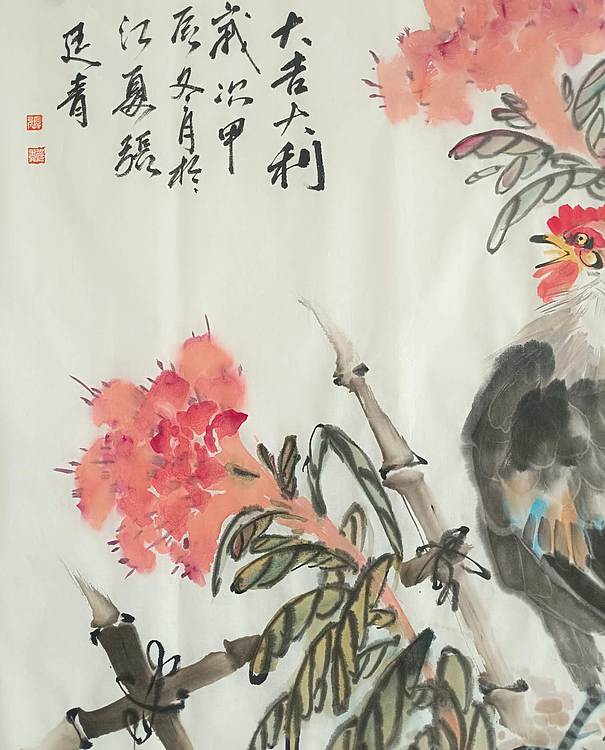 大吉大利
歲次甲
辰冬月於
江夏張
廷青